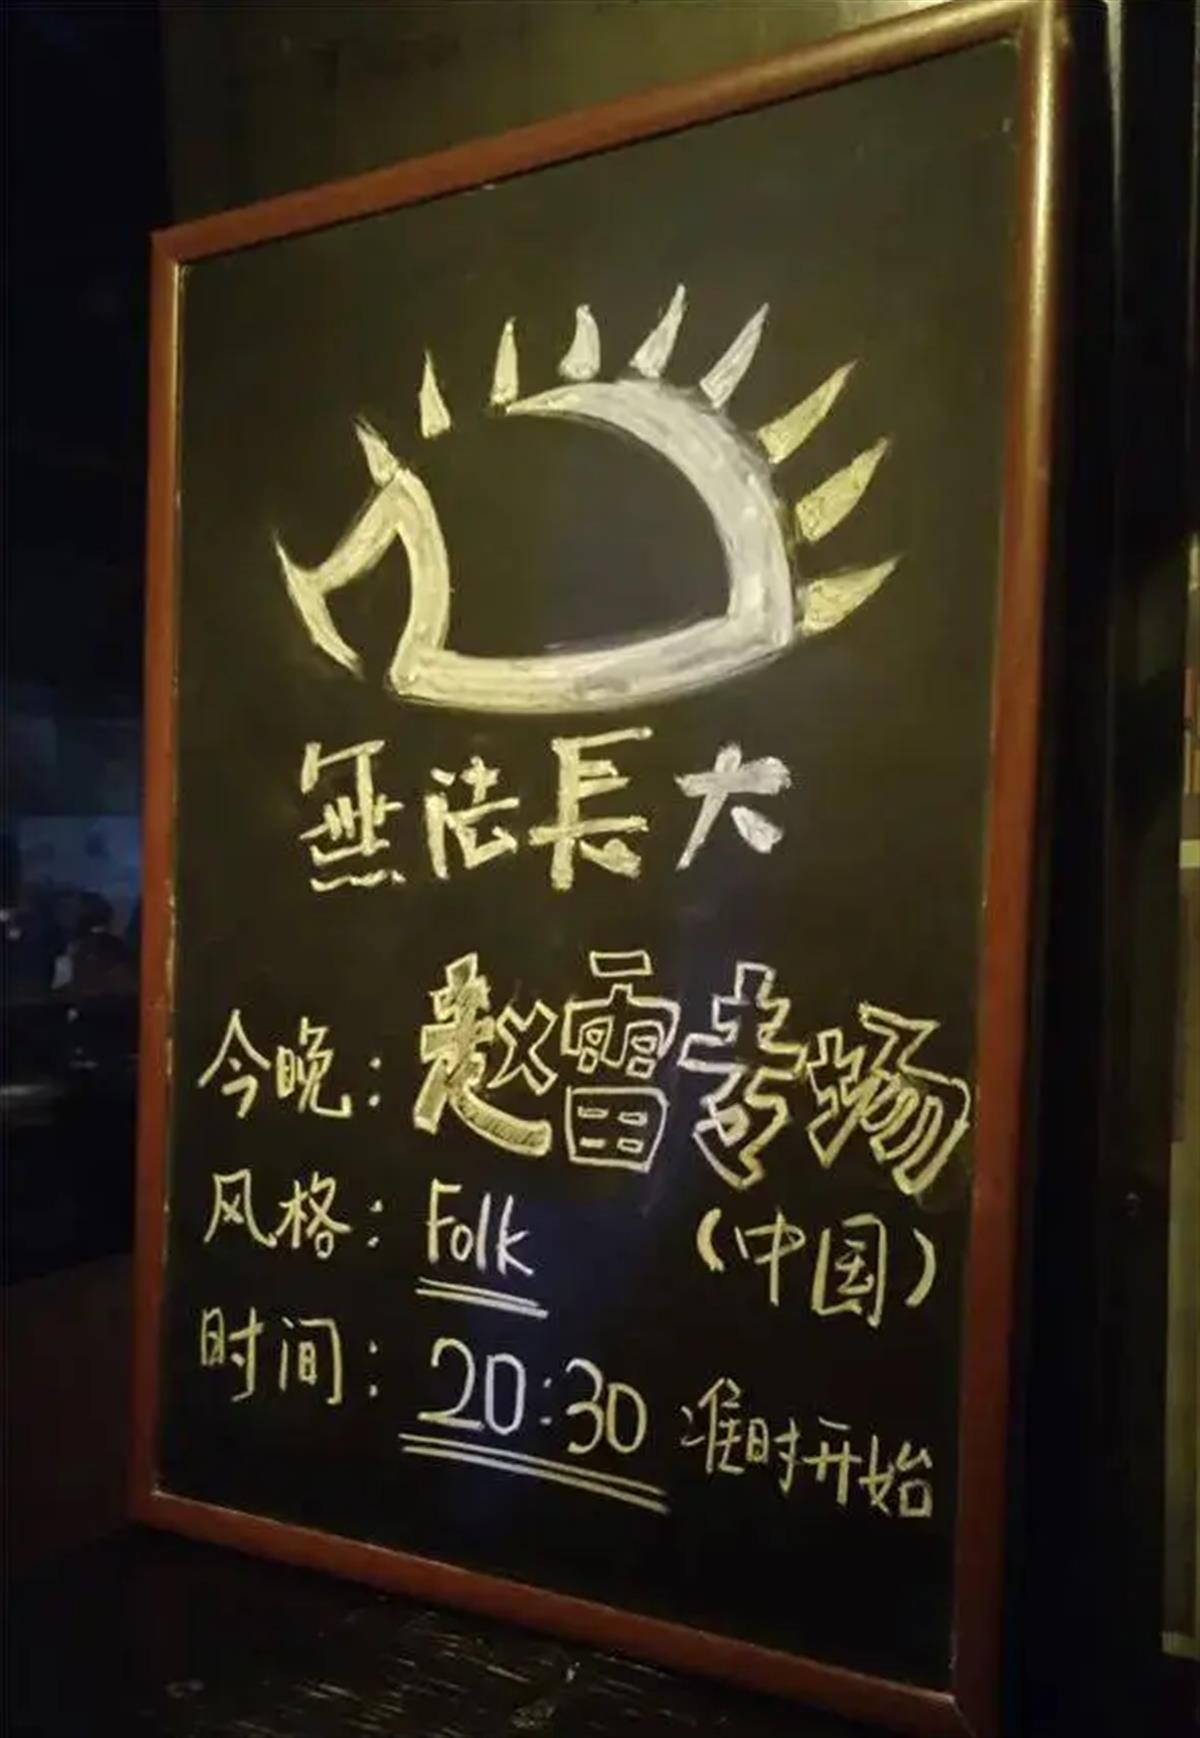 無法長大
今晚：赵雷专场
风格：Folk （中国）
时间：20:30 准时开始